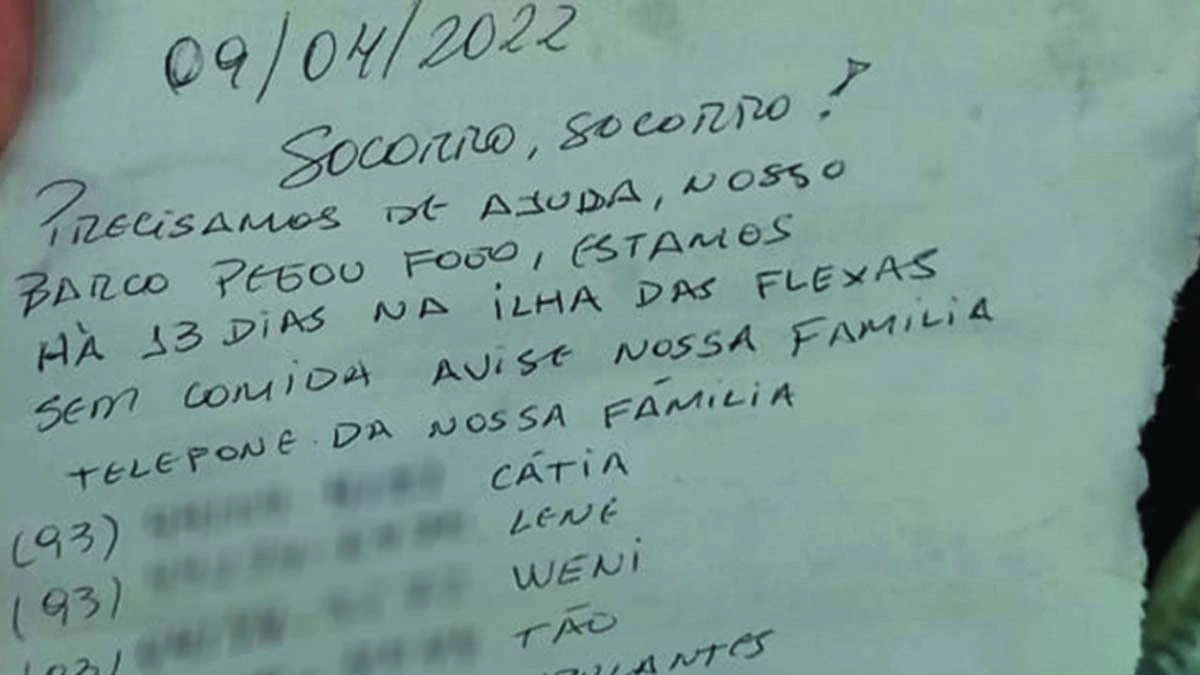 09/04/2022
SOCORRO, SOCORRO!
PRECISAMOS DE AJUDA, NOSSO
BARCO PEGOU FOGO, ESTAMOS
HÀ 13 DIAS NA ILHA DAS FLEXAS
SEM COMIDA AVISE NOSSA FAMILIA
TELEPONE DA NOSSA FÁMILIA
(93) CÁTIA
(93) LENE
(93) WENI
TÃO